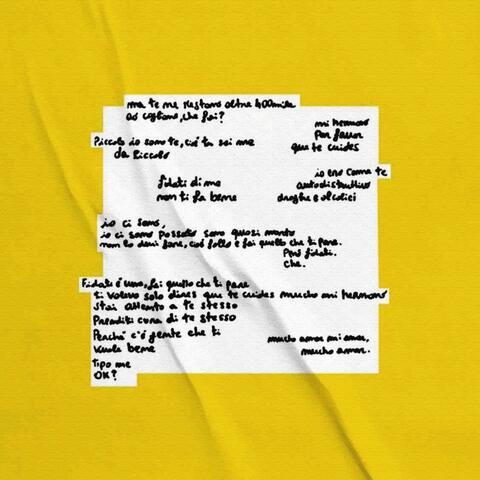 ma te ne restano oltre 400mila
ad ognuno, che fai?
mi hermano
Por favor
que te cuides
Piccolo io sono te, cioè tu sei me
da piccolo
io ero come te
autodistruttivo
droghe e alcolici
fidati di me
non ti fa bene
io ci sono,
io ci sono passato sono quasi morto
non lo devi fare, cioè fallo e fai quello che ti pare.
Però fidati.
Che.
Fidati è vero, fai quello che ti pare
ti volevo solo dire que te cuides mucho mi hermano
Stai attento a te stesso
Prenditi cura di te stesso
Perché c'è gente che ti
vuole bene
tipo me
OK?
mucho amor mi amor,
mucho amor.